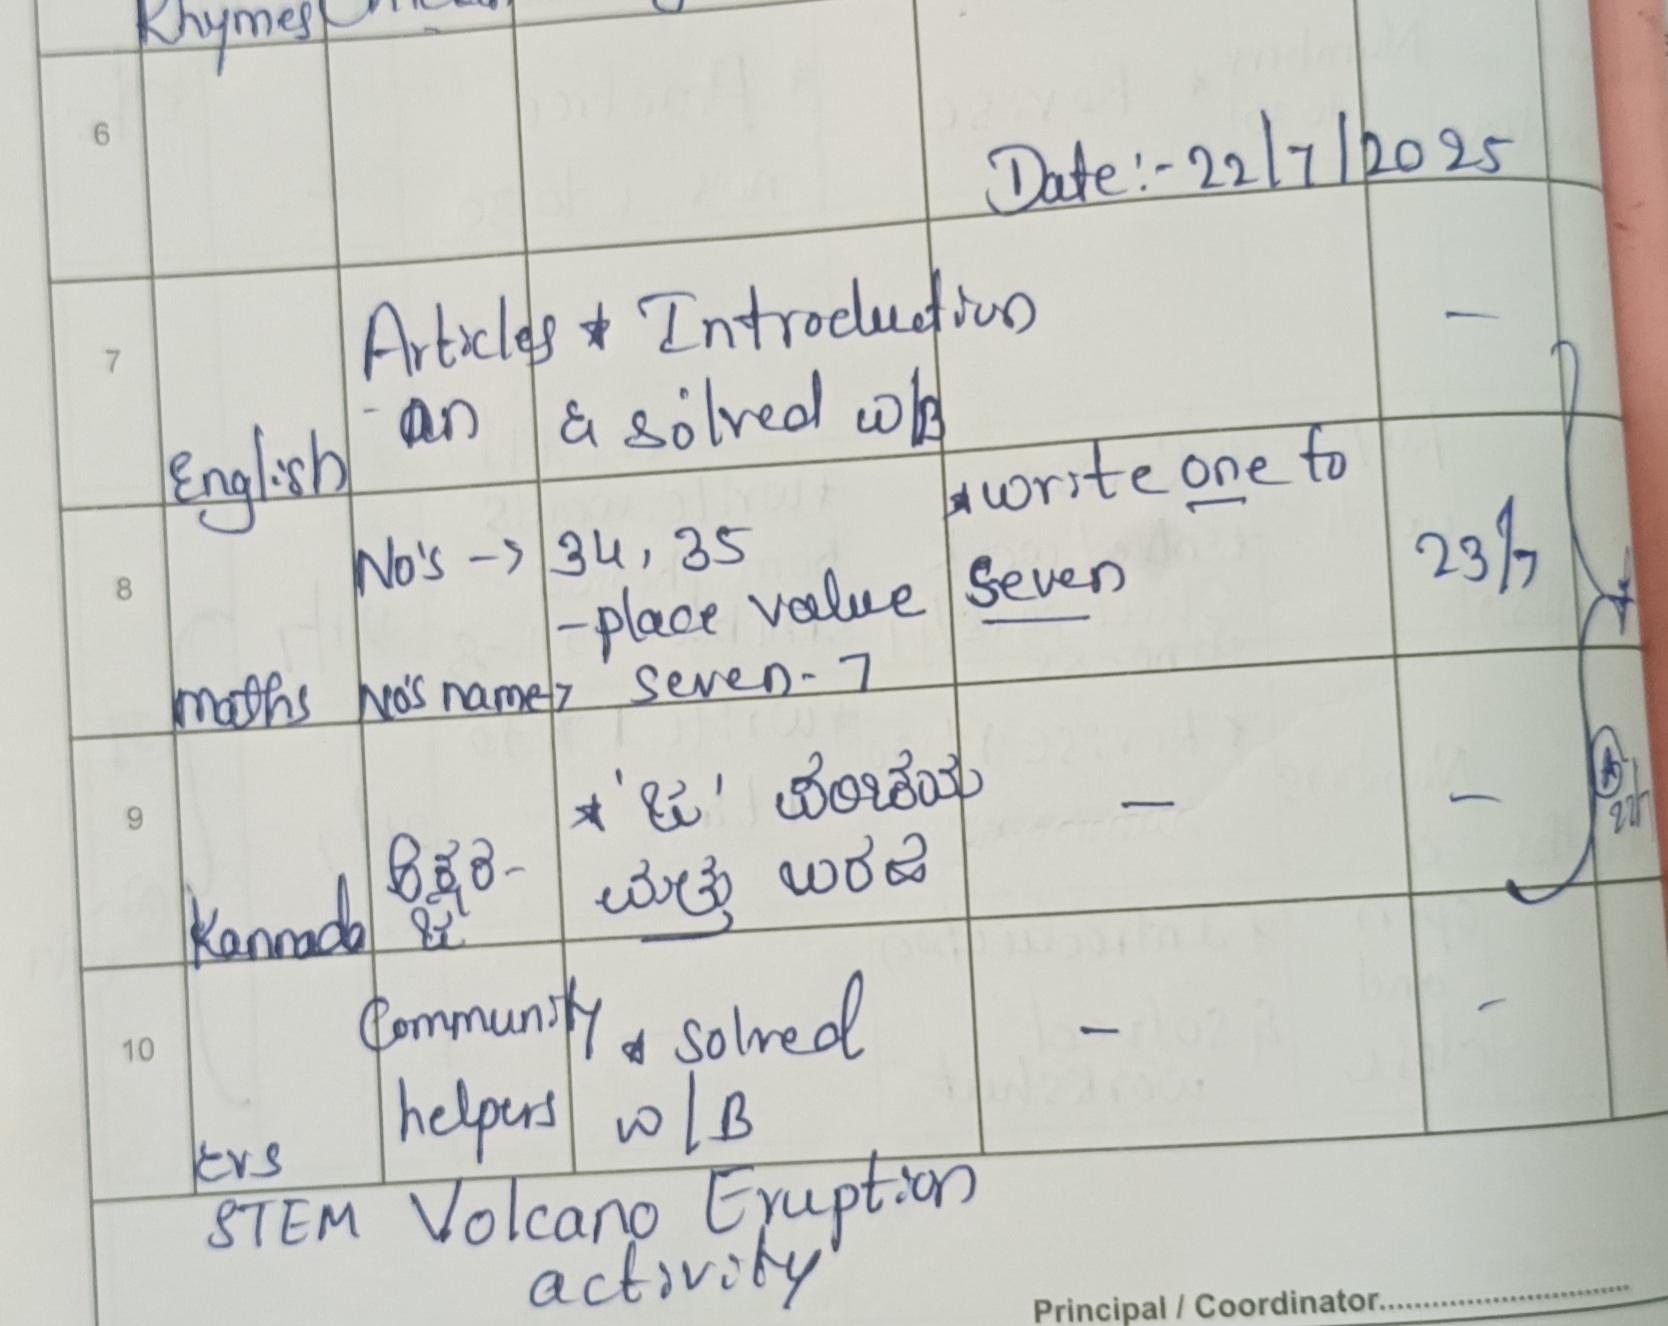 Rhymes
6
Date:- 22/7/2025
7 English Articles * Introduction -
- an & solved w/B
8 maths No's -> 34, 35 * write one to 23/7
- place value seven
No's name> seven - 7
9 Kannada ಅಕ್ಷರ- * 'ಋ' - -
ಋ ಮತ್ತು ಬರಹ
10 EVS Community * solved - -
helpers w/B
STEM Volcano Eruption
activity
Principal / Coordinator